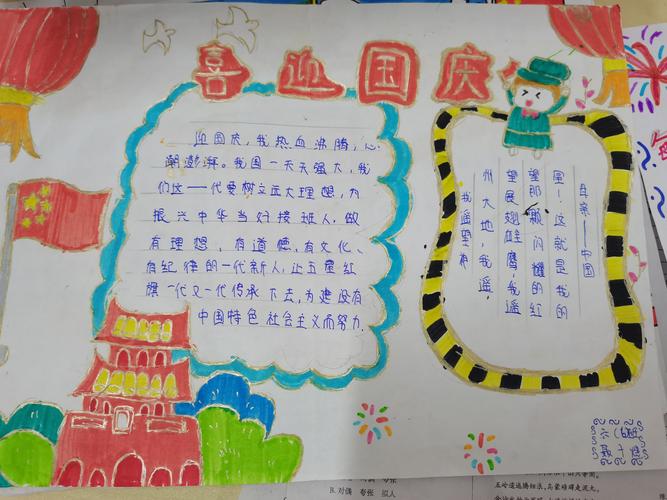 喜迎国庆
迎国庆,我热血沸腾,心
潮澎湃。我国一天天强大,我
们这一代要树立远大理想,为
振兴中华当好接班人,做
有理想、有道德、有文化、
有纪律的一代新人,让五星红
旗一代又一代传承下去,为建设有
中国特色社会主义而努力.
我遥望神
州大地,我遥
望展翅雄鹰,我遥
望那颗闪耀的红
星!这就是我的
母亲——中国
B.对偶 夸张 拟人
五岭逶迤腾细浪,乌蒙磅礴走泥丸。